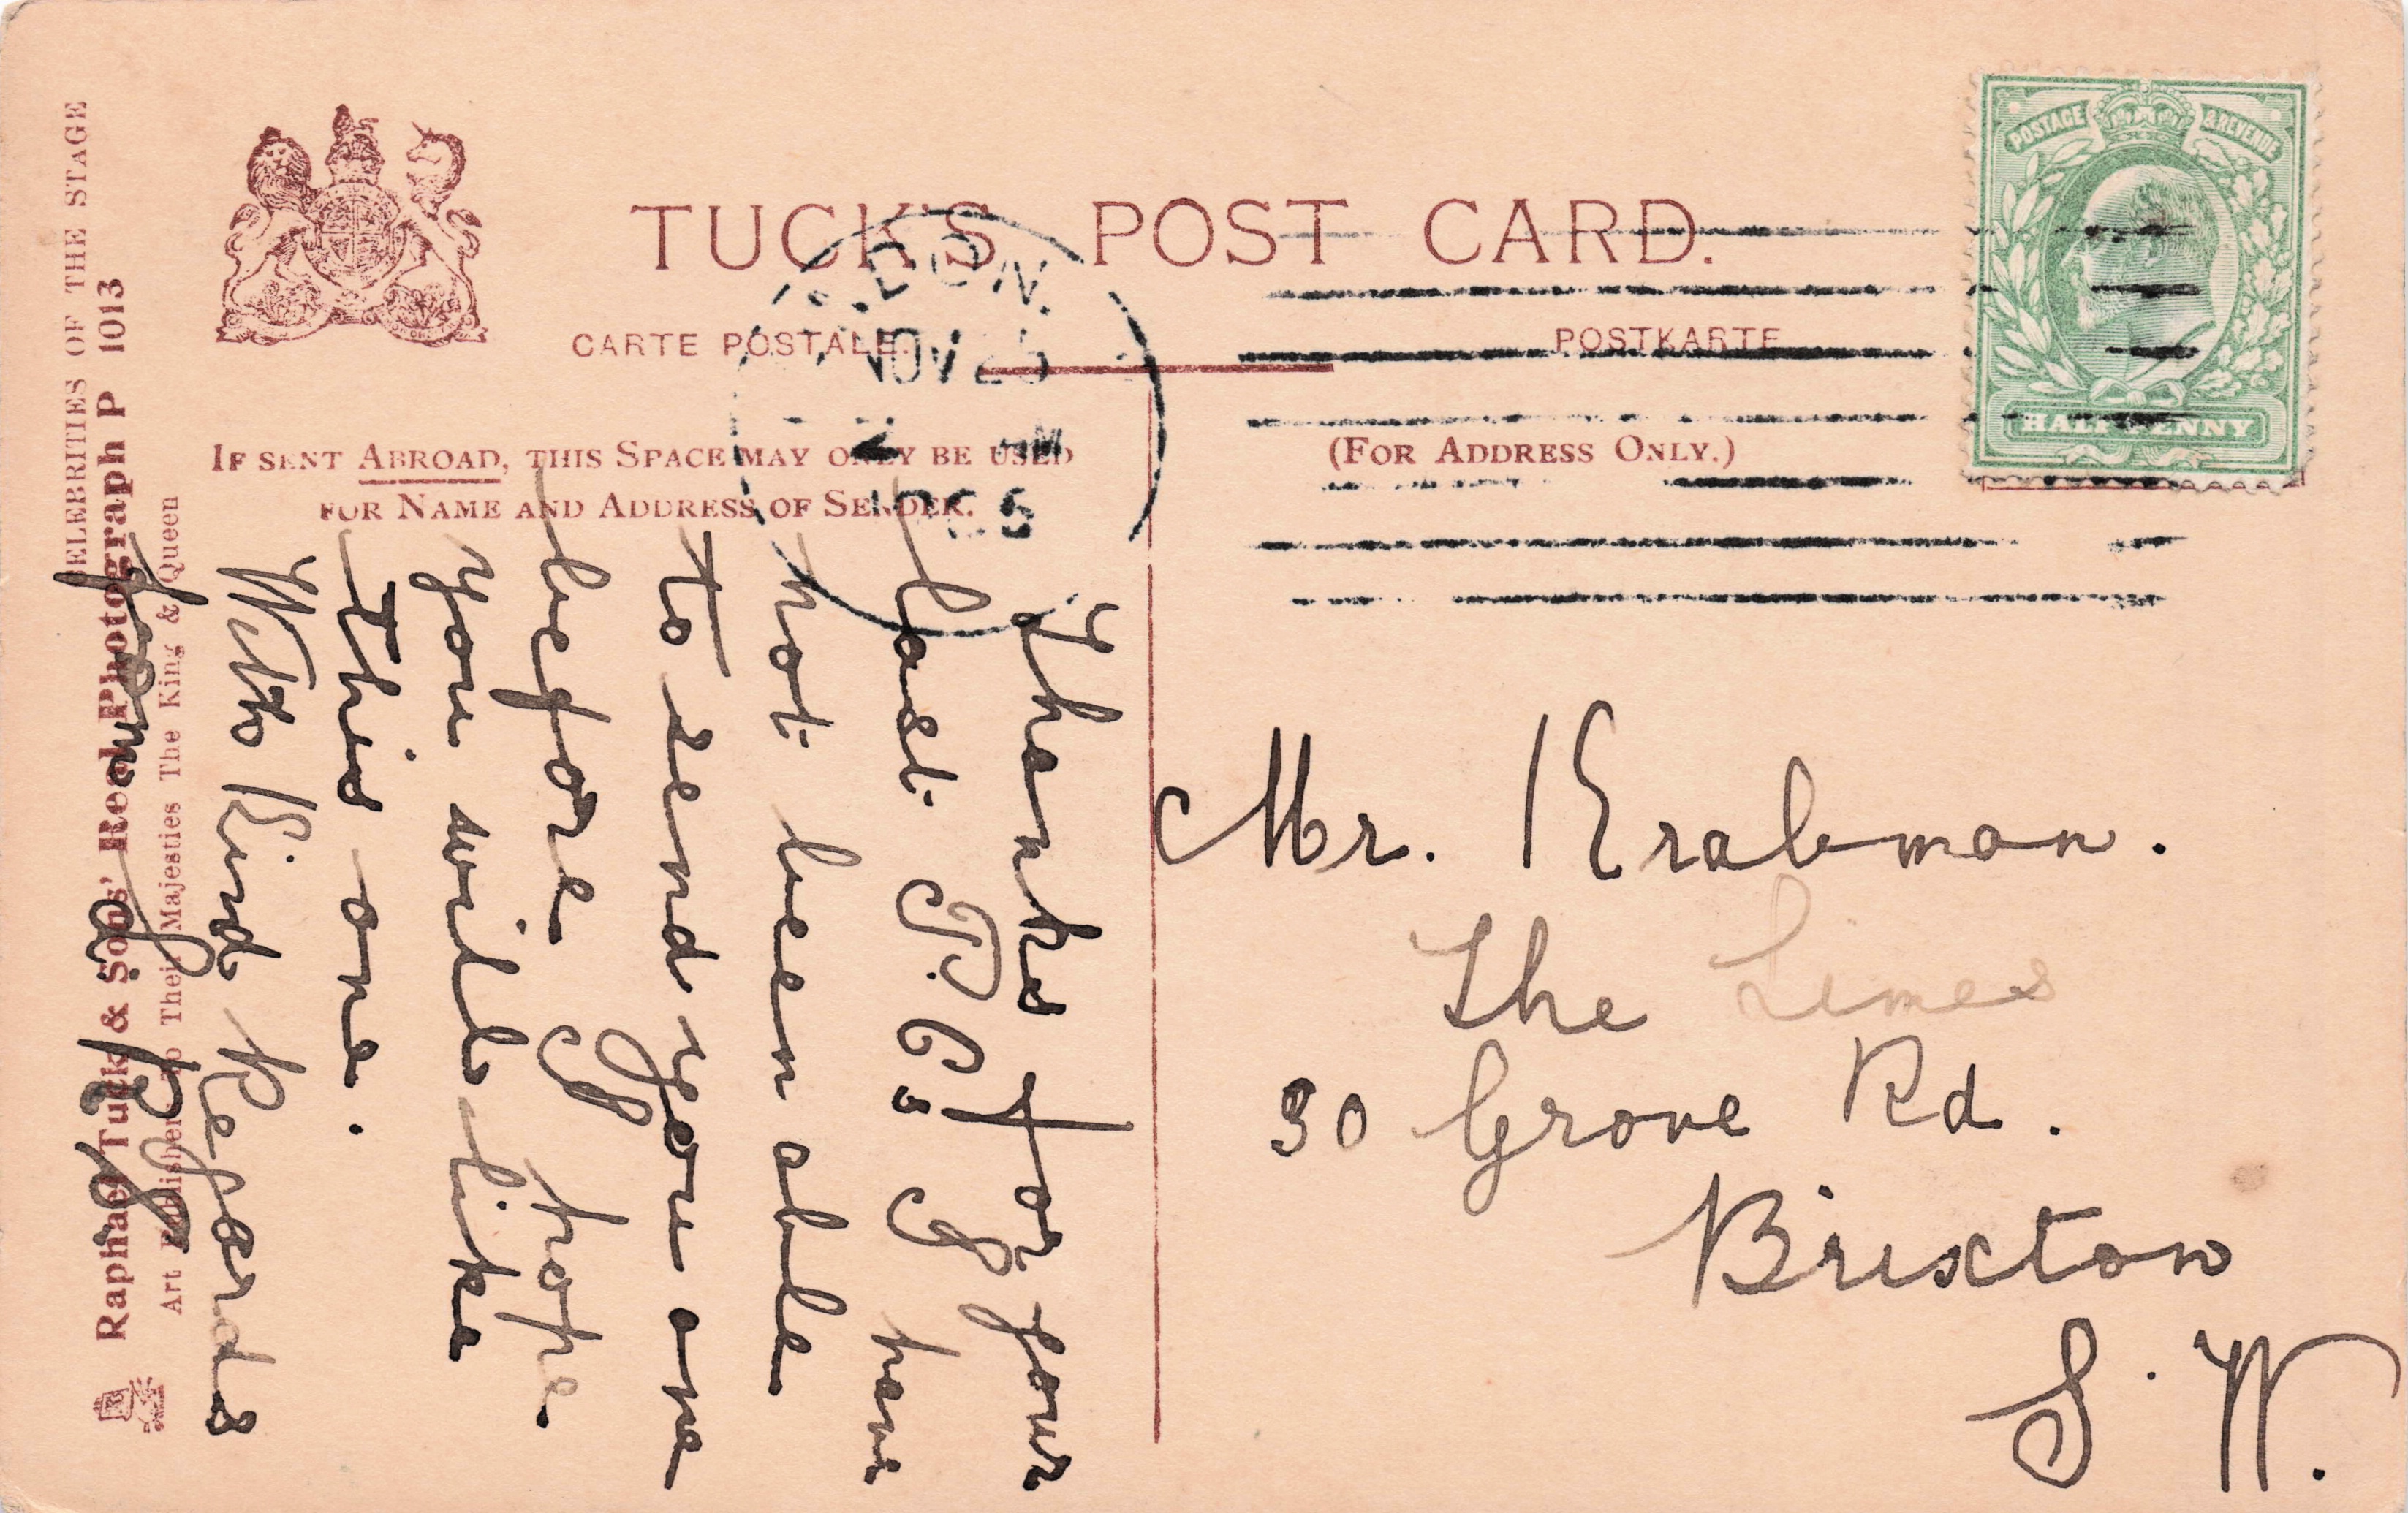 TUCK'S POST CARD.
CARTE POSTALE. POSTKARTE
IF SENT ABROAD, THIS SPACE MAY ONLY BE USED
FOR NAME AND ADDRESS OF SENDER.
(FOR ADDRESS ONLY.)
POSTAGE & REVENUE
HALFPENNY
NOV 25
CELEBRITIES OF THE STAGE
Raphael Tuck & Sons' Real Photograph P 1013
Art Publishers to Their Majesties The King & Queen
Thanks for your
last P. Cs I have
not been able
to send you one
before I hope
you will like
this one.
With Kind Regards
Mr. Krabman.
The Limes
30 Grove Rd.
Brixton
S. W.